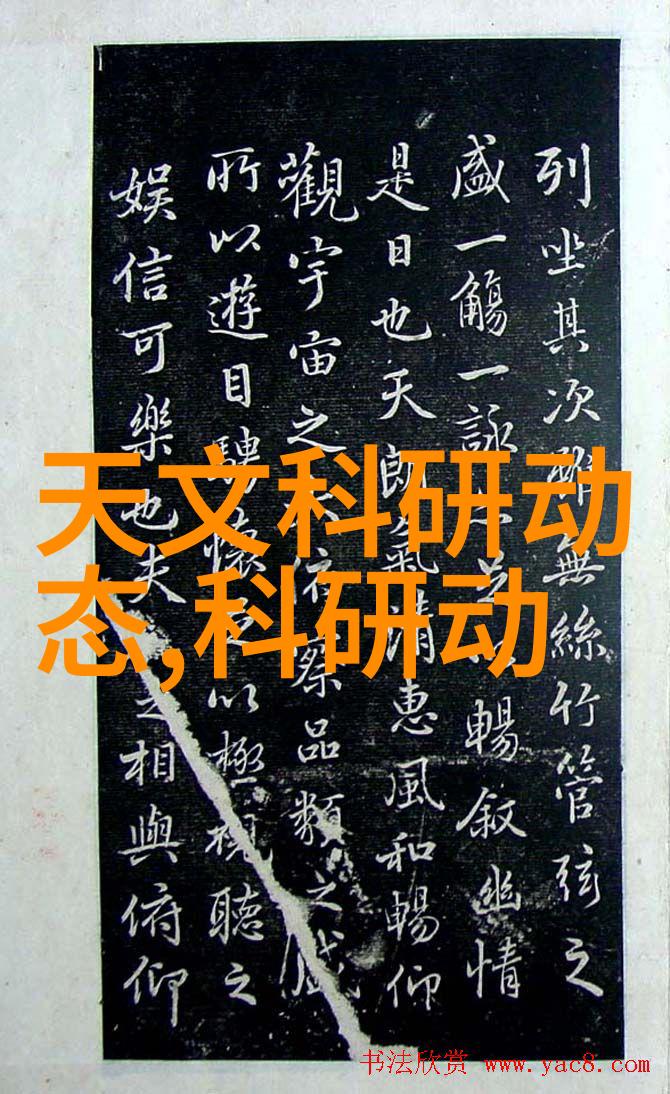 列坐其次雖無絲竹管弦之
盛一觴一詠暢叙幽情
是日也天朗氣清惠風和暢仰
觀宇宙之俯察品類之盛
所以遊目騁懷以極視聽之
娛信可樂也夫之相與俯仰
天文科研动
态,科研动
书法欣赏 www.yac8.com